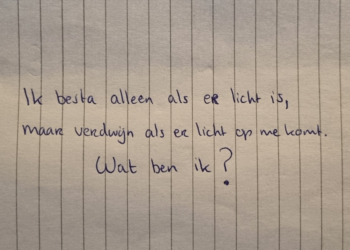 Ik besta alleen als er licht is,
maar verdwijn als er licht op me komt.
Wat ben ik?